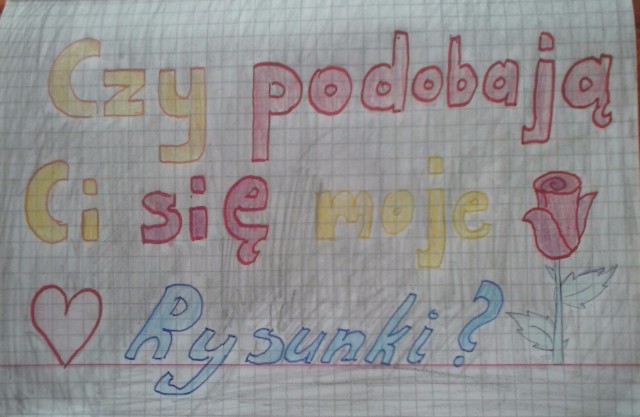 Czy podobają
Ci się moje
Rysunki?